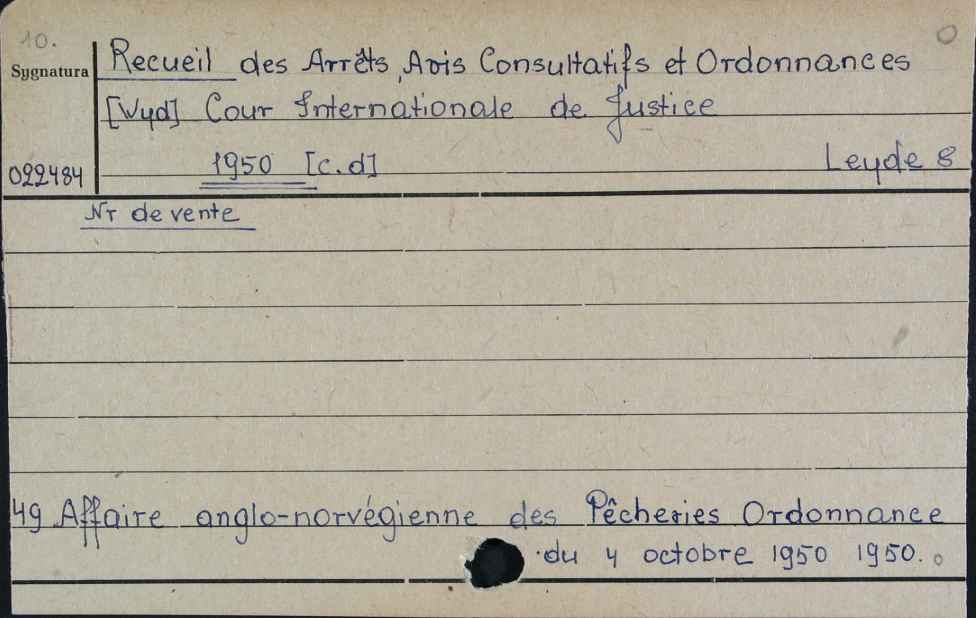 10.
Sygnatura
Recueil des Arrêts, Avis Consultatifs et Ordonnances
[Wyd] Cour Internationale de Justice
022484
1950 [c.d] Leyde 8
Nr de vente
49 Affaire anglo-norvégienne des Pêcheries Ordonnance
du 4 octobre 1950 1950.